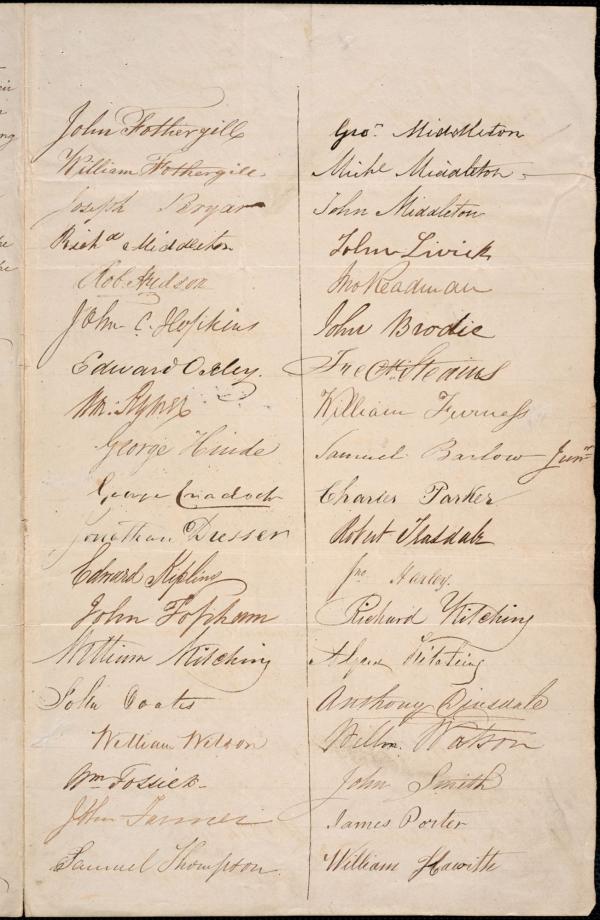 John Fothergill
William Fothergill
Joseph Pryar
Richd Middleton
Rob Hudson
John C. Hopkins
Edward Oxley.
Wm: Rymer
George Hinde
George Cradock
Jonathan Dresser
Edward Kipling
John Topham
William Kitching
John Coates
William Wilson
Wm Fossick
John Turner
Samuel Thompson.
Geo: Middleton
Michl Middleton
John Middleton
John Livick
Jno Readman
John Brodie
Stevins
William Furness
Samuel Barlow Junr
Charles Parker
Robert Teasdale
Jno Harley.
Richard Kitching
Kitching
Anthony Dinsdale
Willm. Watson
John Smith
James Porter
William Hewith